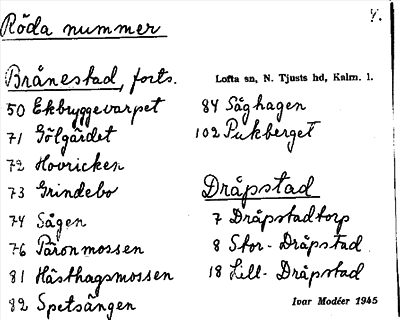 Röda nummer
4.
Brånestad, forts.
Lofta sn, N. Tjusts hd, Kalm. l.
50 Ekbryggevarpet
71 Gölgärdet
72 Hovricken
73 Grindebo
74 Sågen
76 Päronmossen
81 Hästhagsmossen
82 Spetsängen
84 Såghagen
102 Pukberget
Dråpstad
7 Dråpstadtorp
8 Stor-Dråpstad
18 Lill-Dråpstad
Ivar Modéer 1945